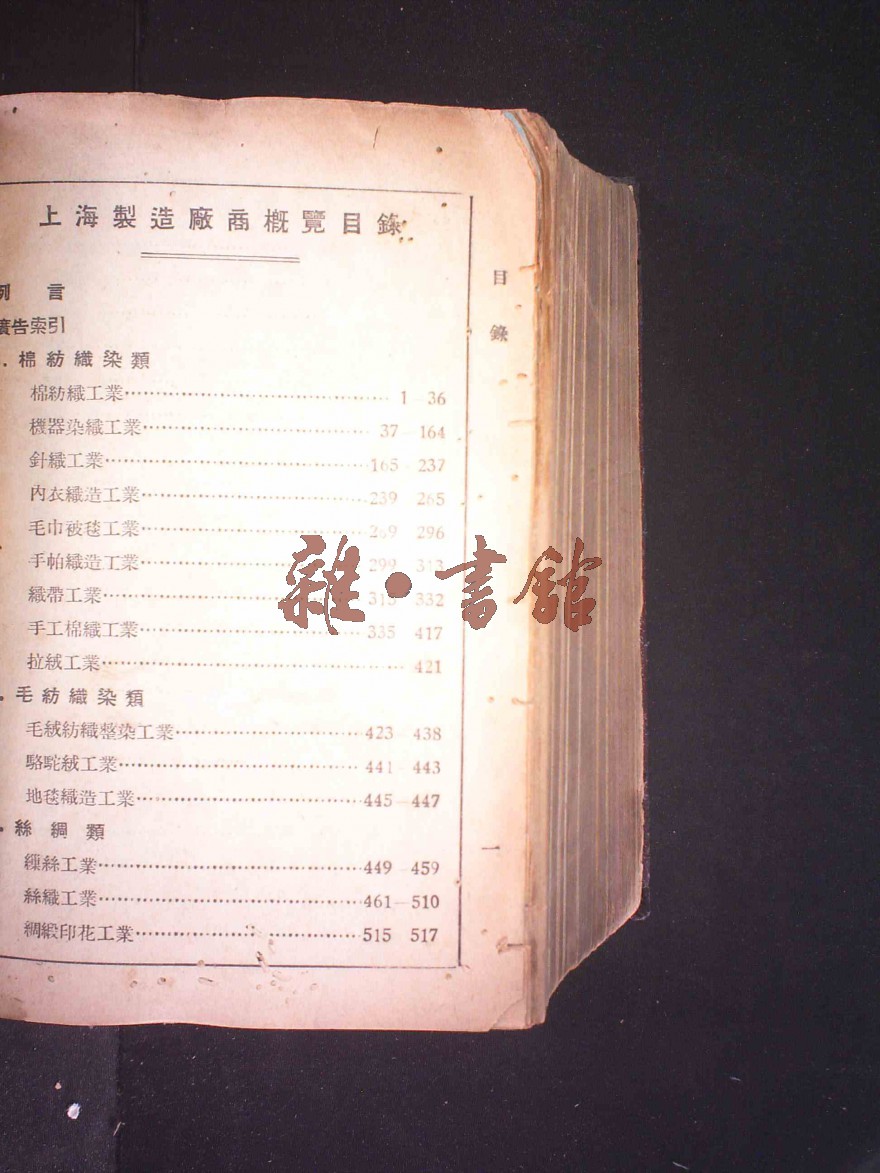 上海製造廠商概覽目錄
例言
廣告索引
棉紡織染類
棉紡織工業 1—36
機器染織工業 37—164
針織工業 165—237
內衣織造工業 239—265
毛巾被毯工業 269—296
手帕織造工業 299—313
織帶工業 315—332
手工棉織工業 335—417
拉絨工業 421
毛紡織染類
毛絨紡織整染工業 423—438
駱駝絨工業 441—443
地毯織造工業 445—447
絲綢類
繅絲工業 449—459
絲織工業 461—510
綢緞印花工業 515—517
目錄
一
雜·書館